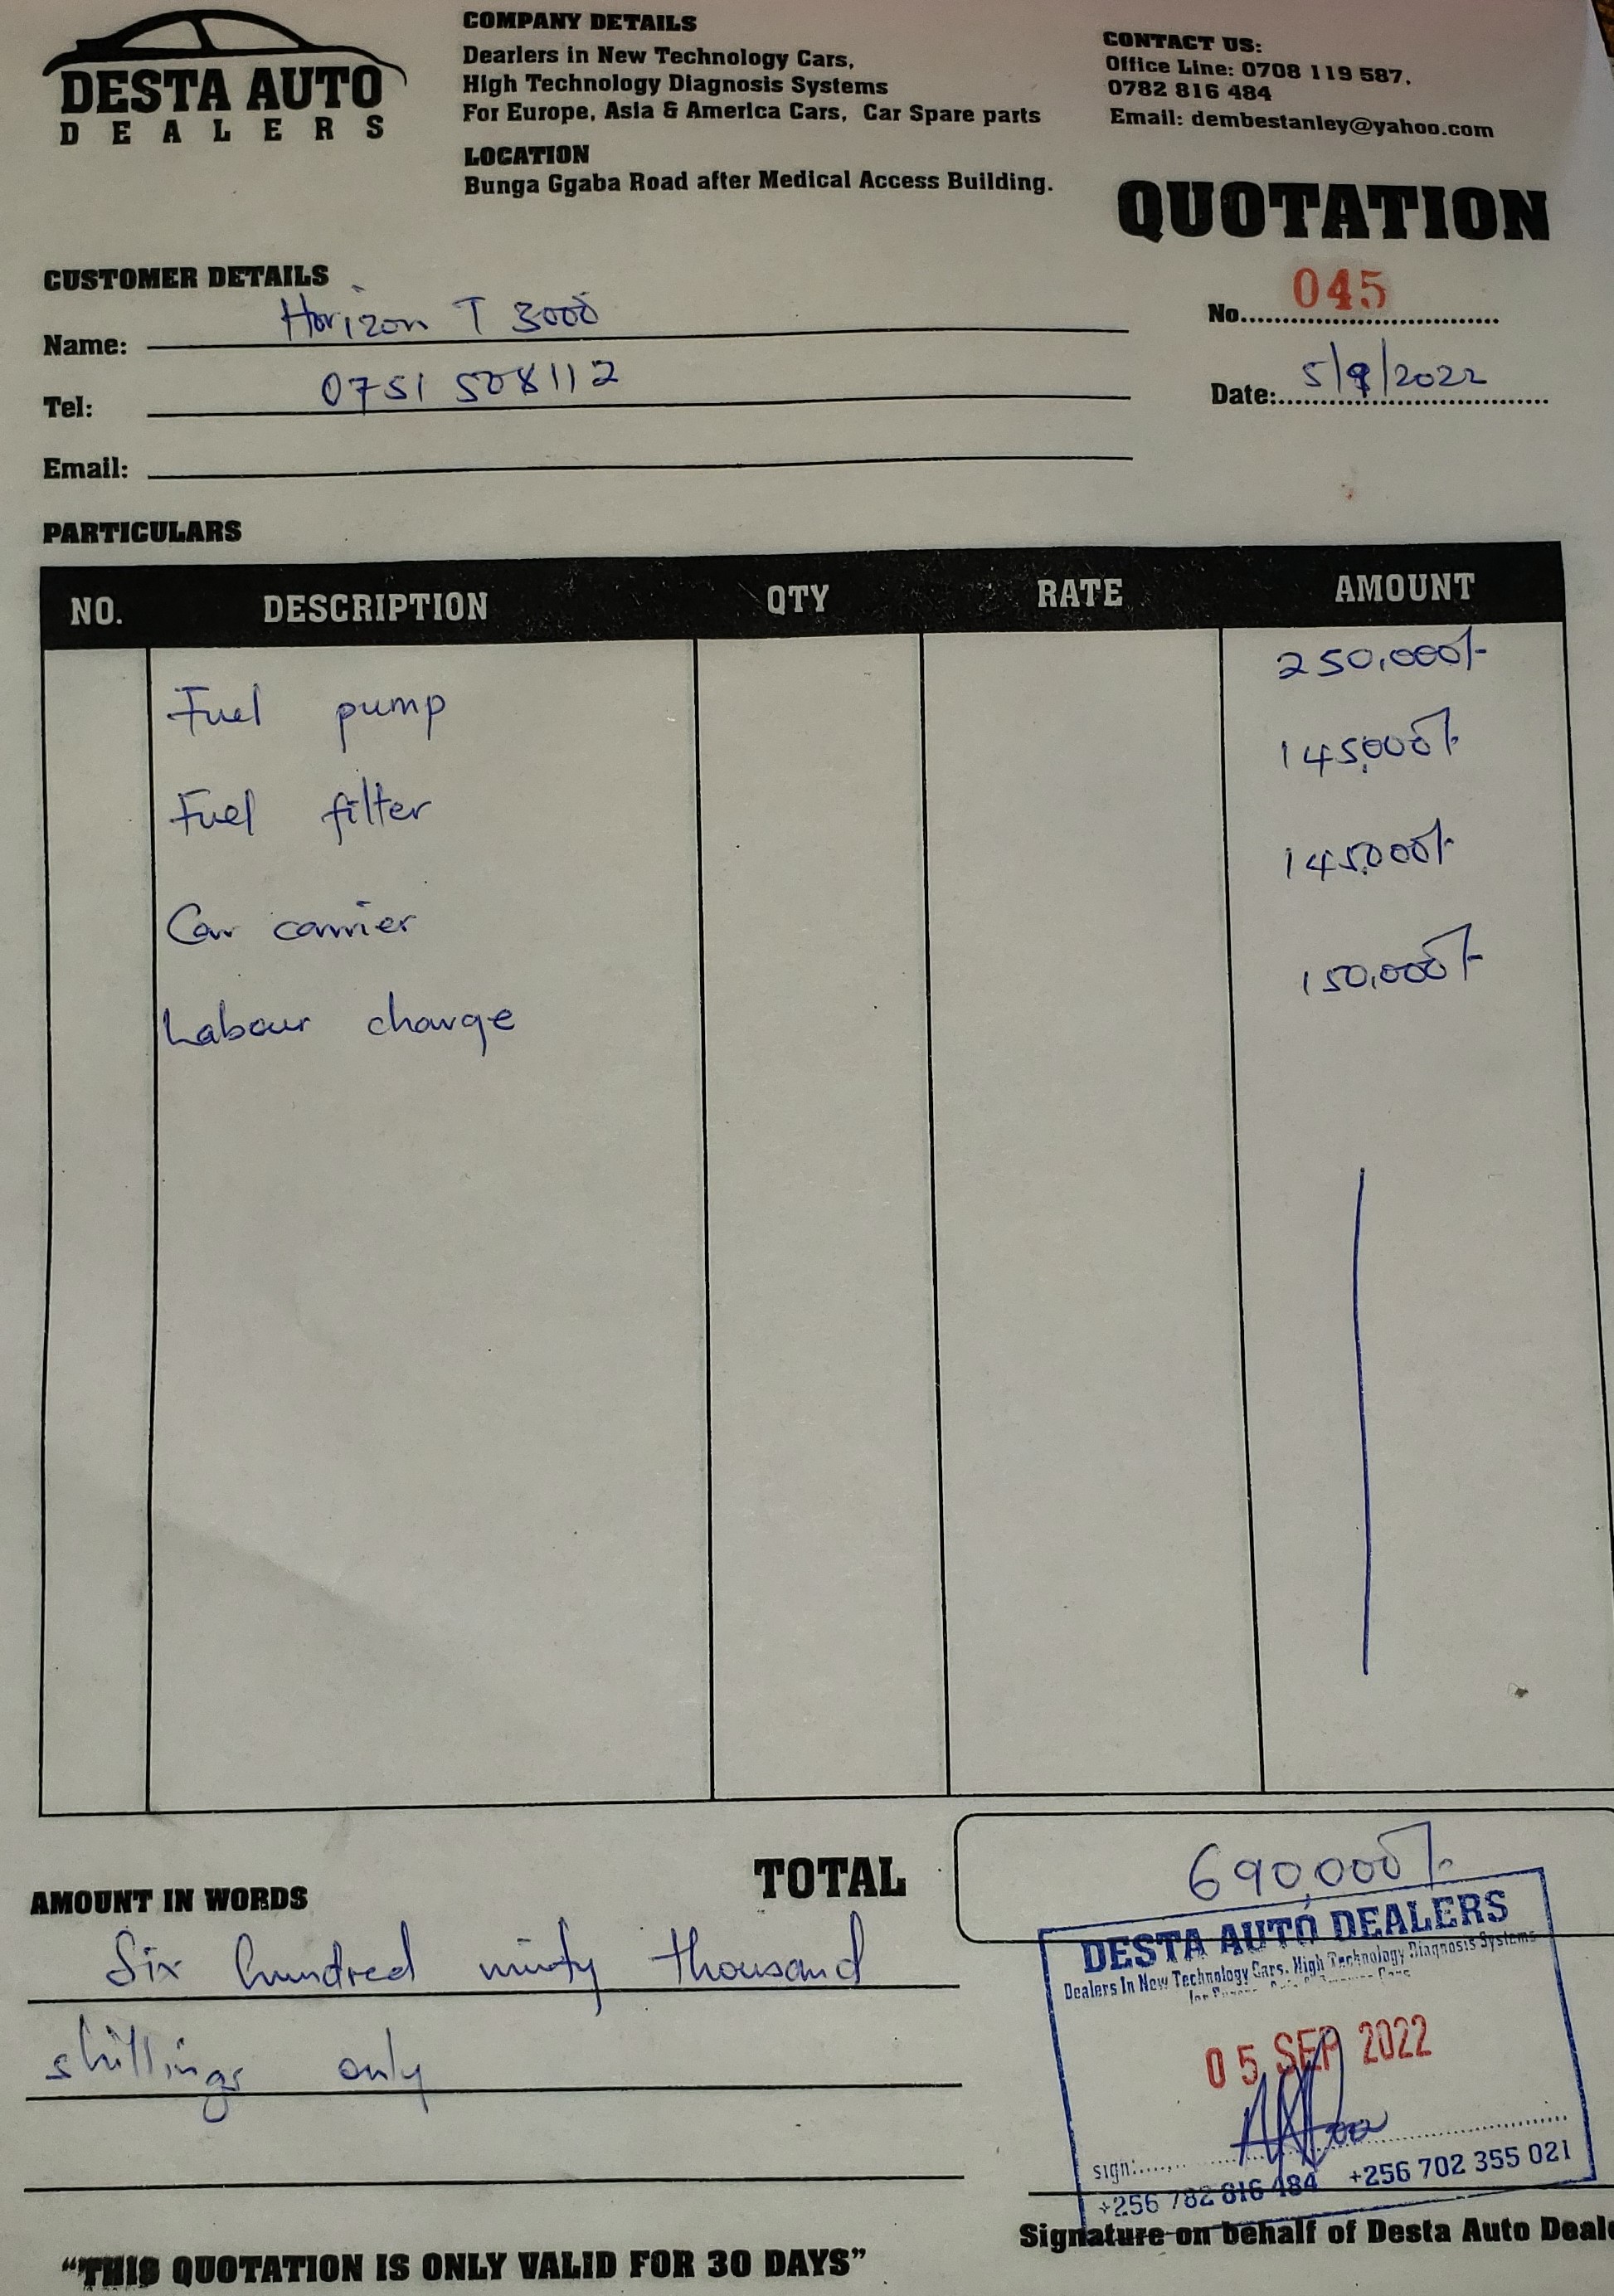 DESTA AUTO
DEALERS
COMPANY DETAILS
Dearlers in New Technology Cars,
High Technology Diagnosis Systems
For Europe, Asia & America Cars, Car Spare parts
LOCATION
Bunga Ggaba Road after Medical Access Building.
CONTACT US:
Office Line: 0708 119 587,
0782 816 484
Email: dembestanley@yahoo.com
QUOTATION
CUSTOMER DETAILS
Name: Horizon T 3000
Tel: 0751 508112
Email:
No. 045
Date: 5/9/2022
PARTICULARS
NO. DESCRIPTION QTY RATE AMOUNT
Fuel pump 250,000/-
Fuel filter 145,000/-
Car carrier 145,000/-
Labour charge 150,000/-
TOTAL 690,000/-
AMOUNT IN WORDS
Six hundred ninty thousand
shillings only
DESTA AUTO DEALERS
Dealers In New Technology Cars, High Technology Diagnosis Systems
05 SEP 2022
sign:
+256 782 816 484 +256 702 355 021
Signature on behalf of Desta Auto Deale
"THIS QUOTATION IS ONLY VALID FOR 30 DAYS"